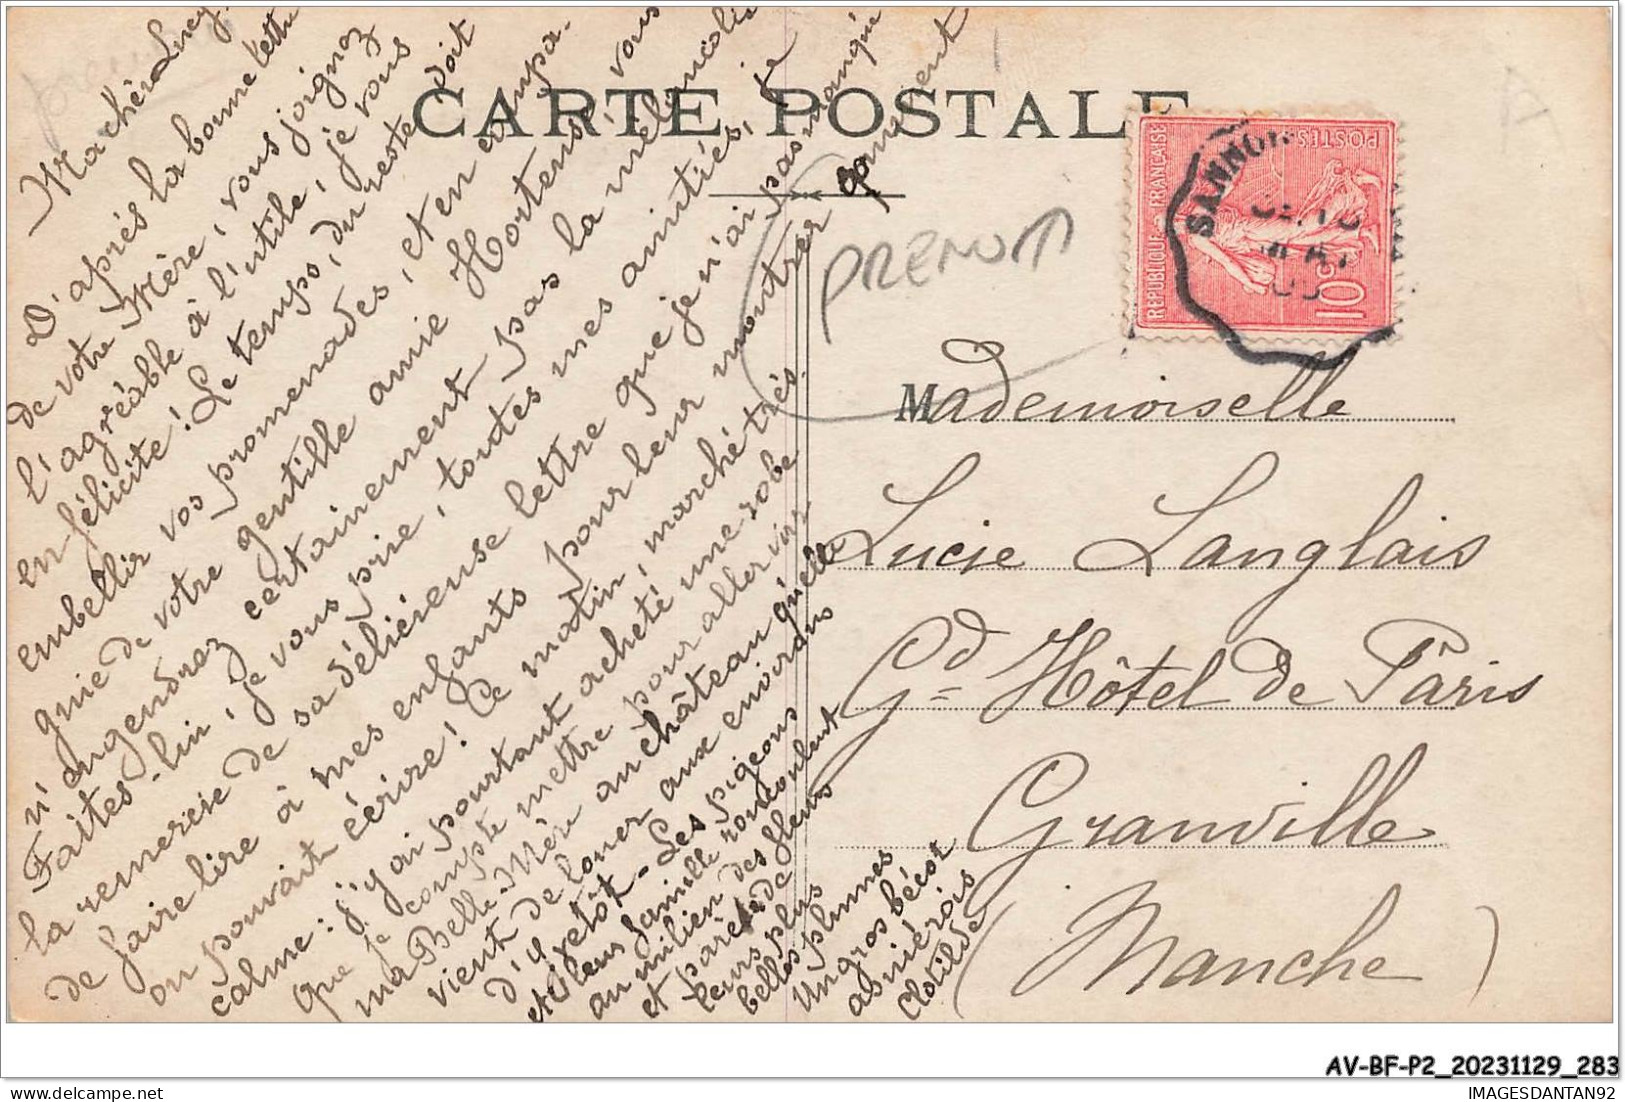 CARTE POSTALE
Ma chère Lucy,
D'après la bonne lettre
de votre Mère, vous joignez
l'agréable à l'utile, je vous
en félicite! Le temps, du reste, doit
embellir vos promenades, et en compa-
gnie de votre gentille amie Hortense, vous
n'engendrez certainement pas la mélancolie
Faites-lui, je vous prie, toutes mes amitiés, je
la remercie de sa délicieuse lettre que je n'ai pas manqué
de faire lire à mes enfants pour leur montrer comment
on pouvait écrire! Ce matin, marché très
calme: j'y ai pourtant acheté une robe
que je compte mettre pour aller voir
ma Belle-Mère au château qu'elle
vient de louer aux environs
d'Yvetôt - Les pigeons
et leur famille roucoulent
au milieu des fleurs
et parés de
leurs plus
belles plumes
Un gros bécot
asniérois
Clotilde
PRENOM
REPUBLIQUE FRANÇAISE
POSTES
10c
SANNOIS
Mademoiselle
Lucie Langlais
Gd Hôtel de Paris
Granville
(Manche)
AV-BF-P2_20231129_283
IMAGESDANTAN92